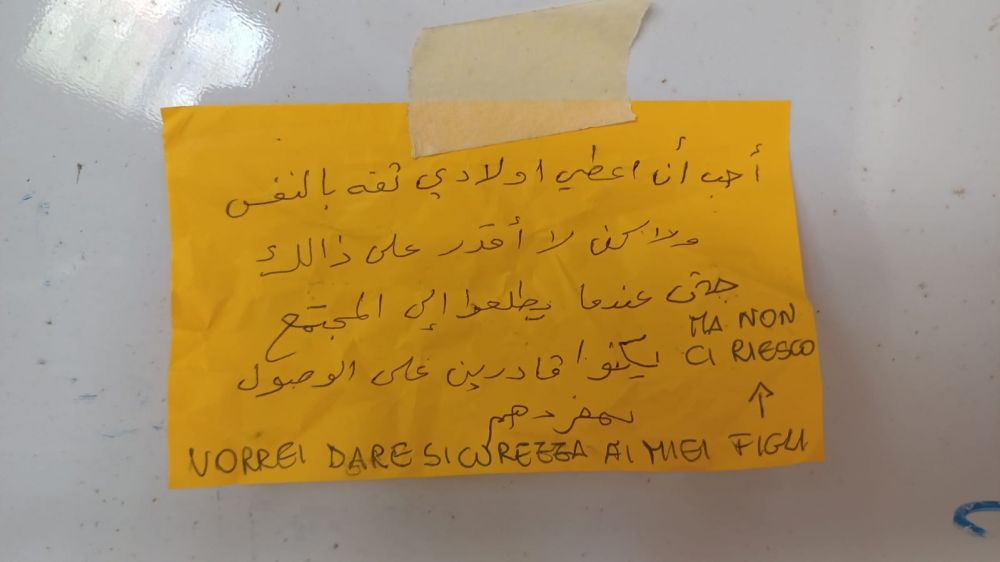 أحب أن اعطي اولادي ثقه بالنفس
ولاكن لا أقدر على ذالك
حتى عندما يطلعوا إلى المجتمع
يكنوا قادرين على الوصول
بمفردهم
VORREI DARE SICUREZZA AI MIEI FIGLI
↑
MA NON
CI RIESCO